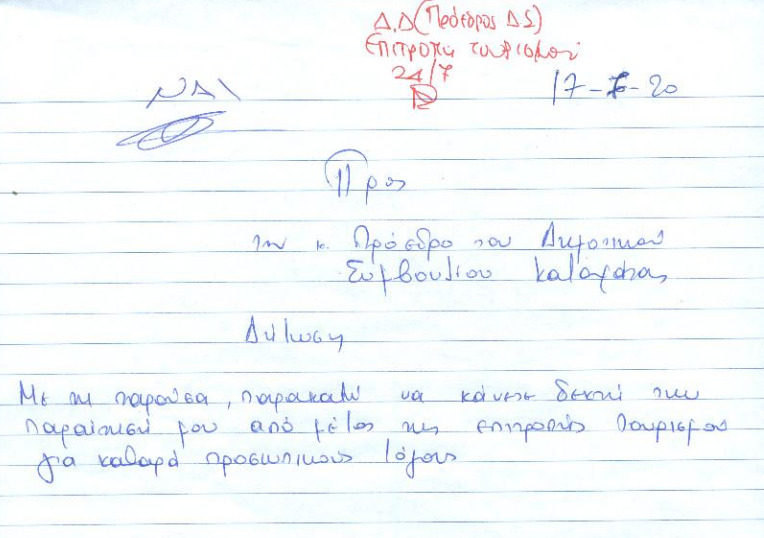 Δ.Δ (Πρόεδρος ΔΣ)
Επιτροπή τουρισμού
24/7
ΝΑΙ
17-7-20
Προς
τον κ. Πρόεδρο του Δημοτικού
Συμβουλίου Καλαμάτας
Δήλωση
Με τη παρούσα, παρακαλώ να κάνετε δεκτή την
παραίτησή μου από μέλος της επιτροπής Τουρισμού
για καθαρά προσωπικούς λόγους